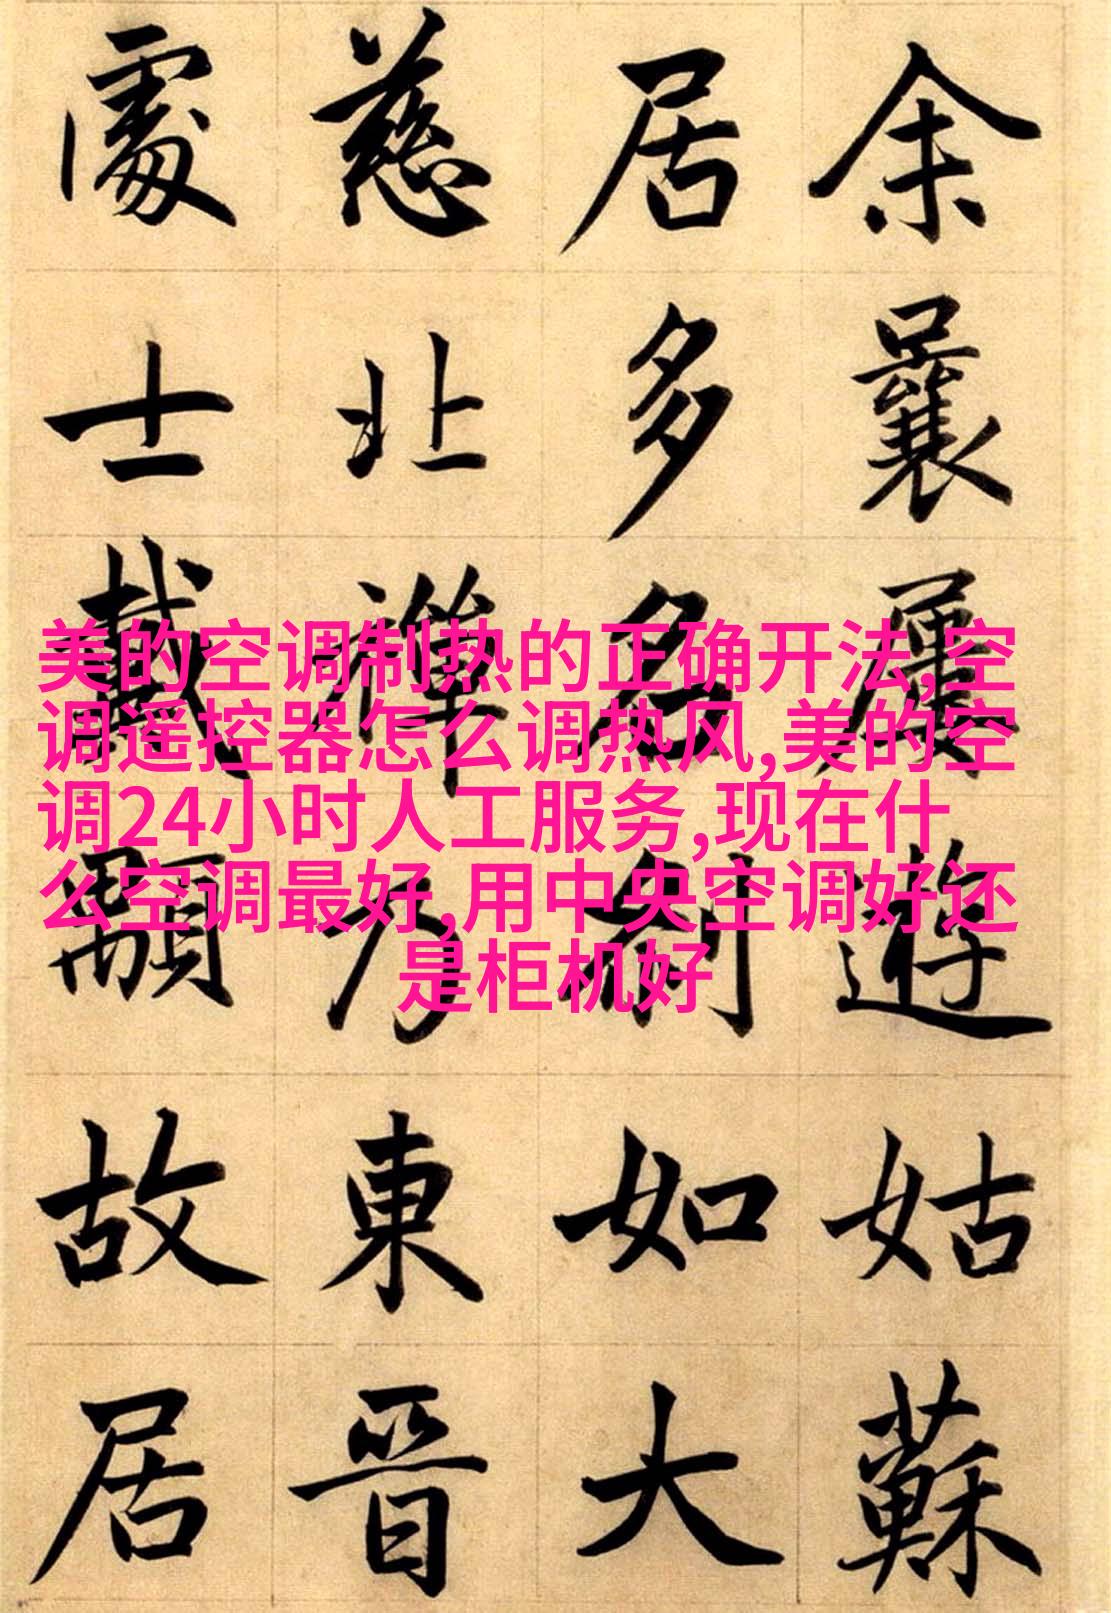 余曩屢遊姑蘇
居多名剎如大
慈北禪乃東晉
處士戴顒故居
美的空调制热的正确开法,空
调遥控器怎么调热风,美的空
调24小时人工服务,现在什
么空调最好,用中央空调好还
是柜机好